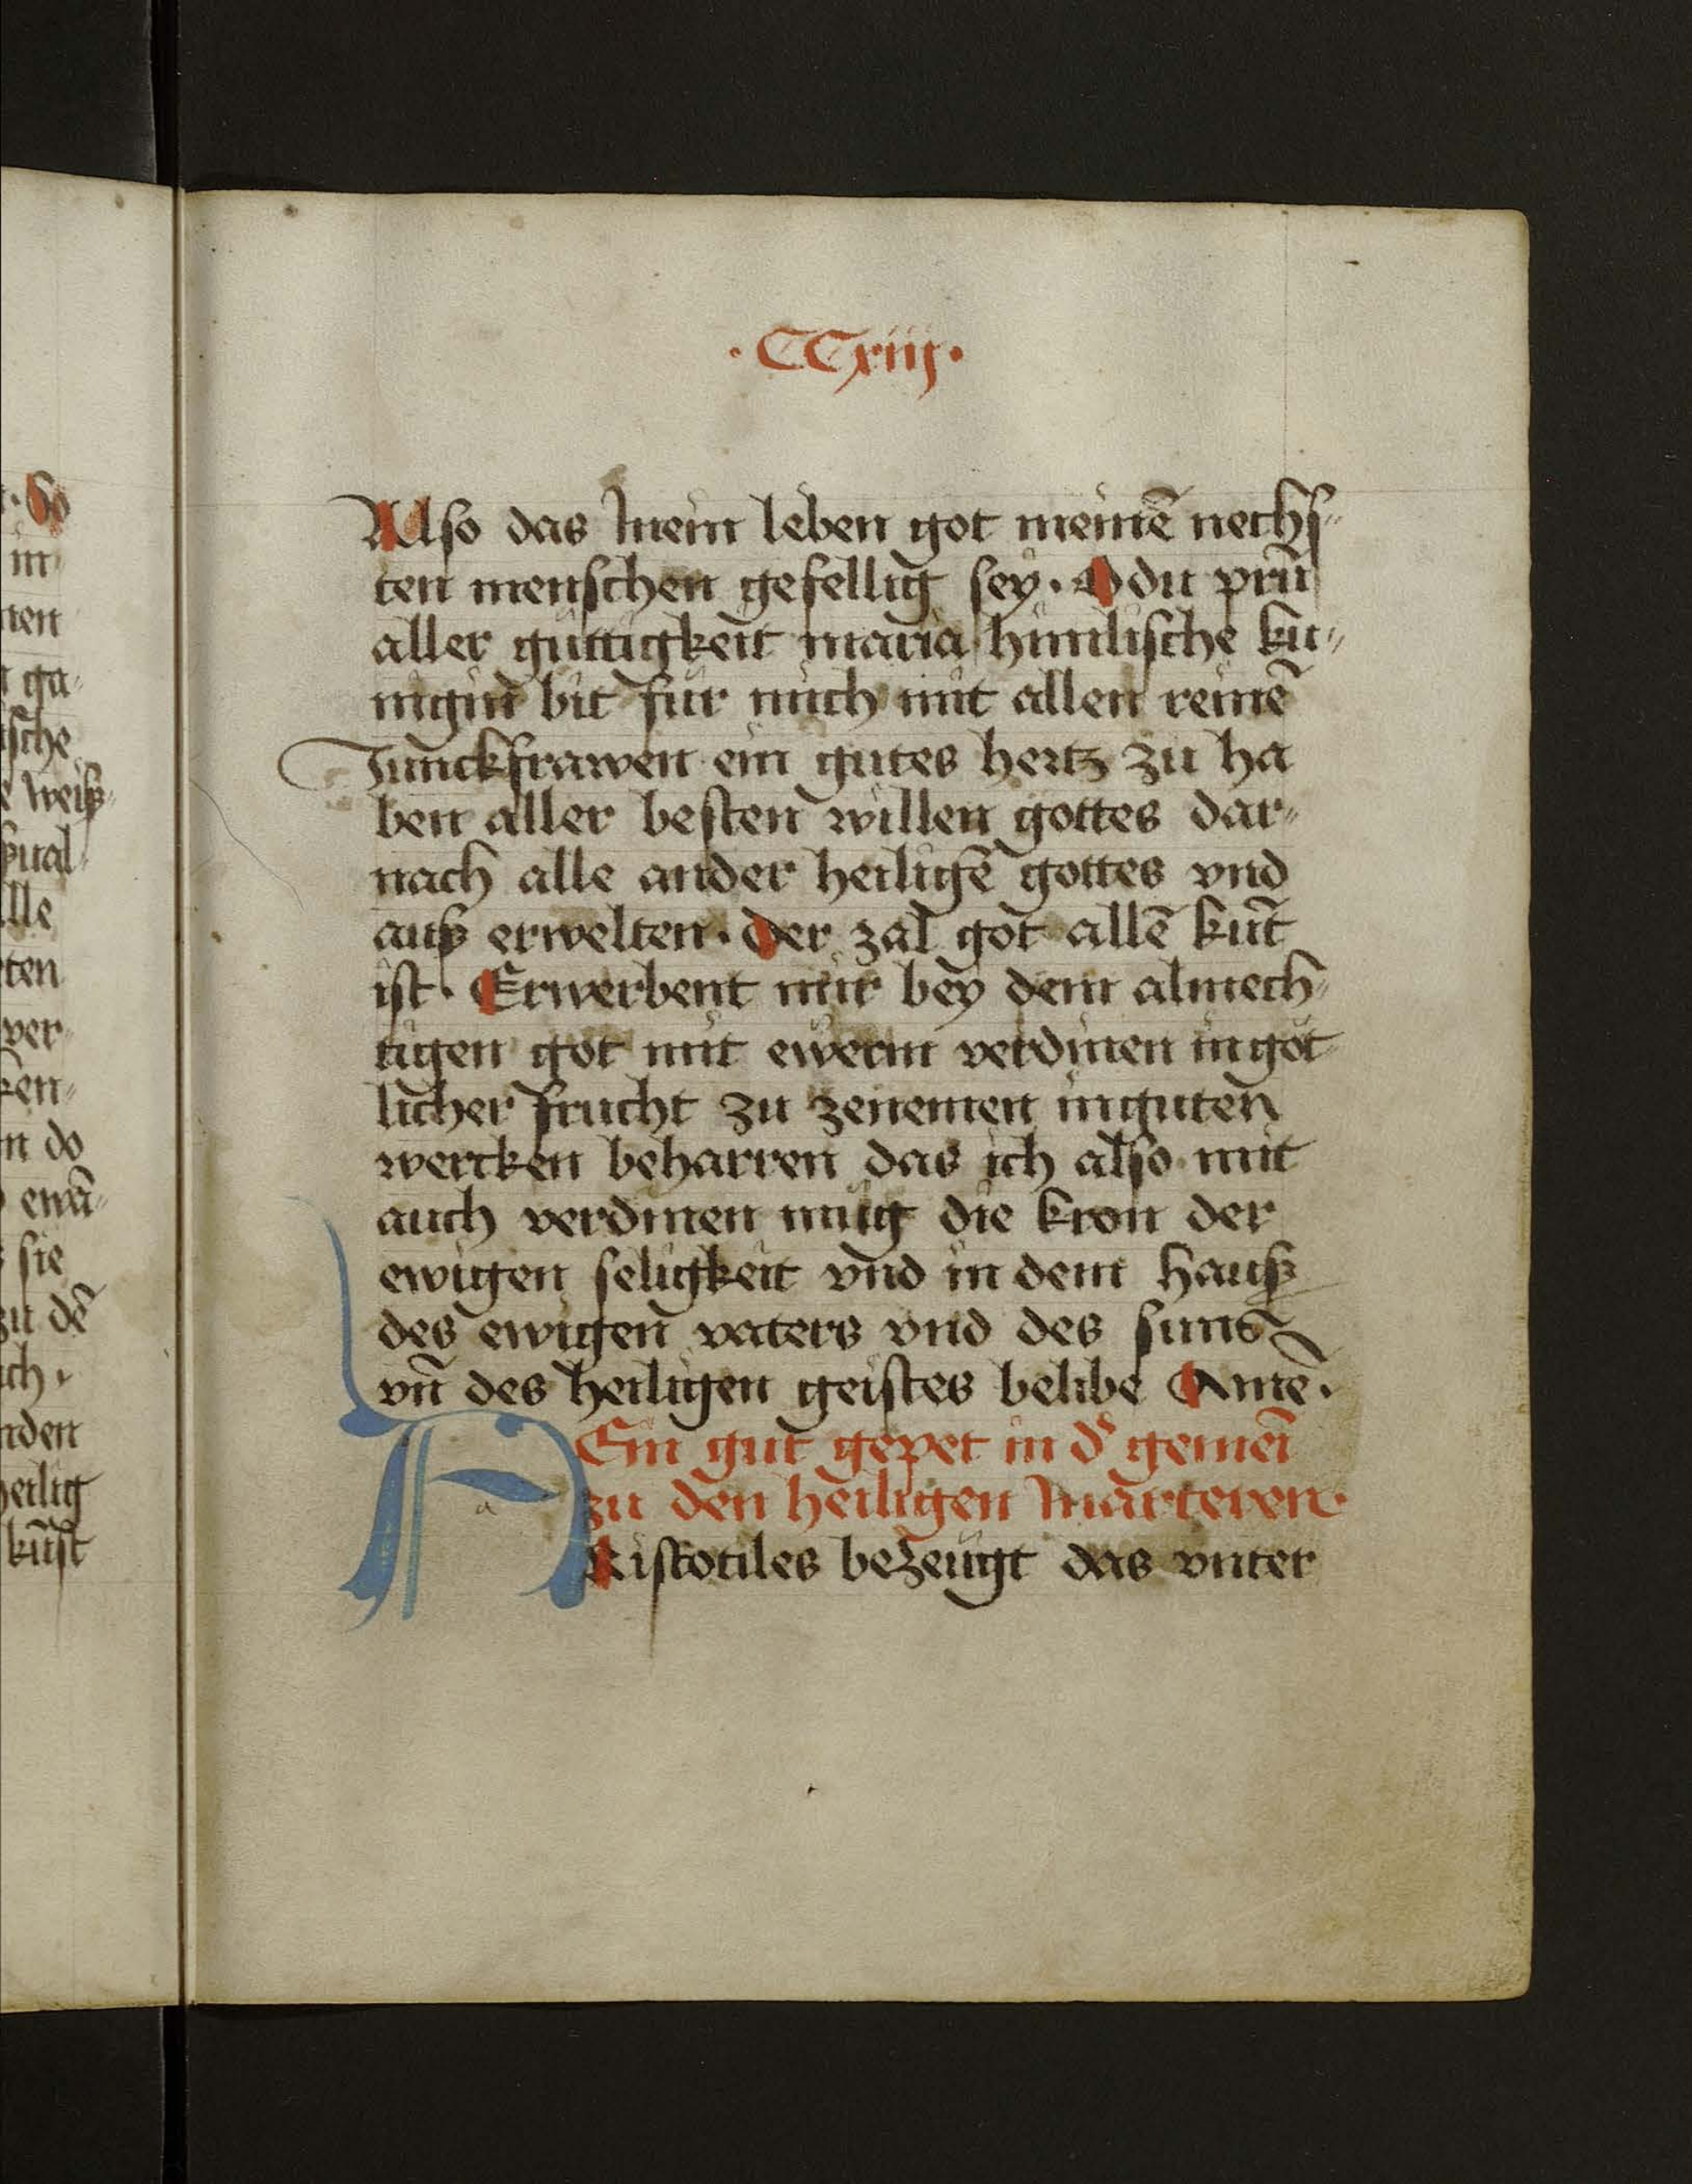 · So
in
nen
ga⸗
ische
weiß⸗
lle
ten
ver⸗
ken⸗
n do
ewā⸗
sie
zu dē
ich ·
nden
heilig
kunst
· CCxiiij ·
Also das mein leben got meinē nechs⸗
ten menschen gefellig sey · O du prūn
aller guttigkeit maria himlische ku⸗
nigin̄ bit fur mich mit allen reinē
Junckfrawen ein gutes hertz zu ha
ben aller besten willen gottes dar⸗
nach alle ander heiligē gottes vnd
auß erwelten · der zal got allē kūt
ist · Erwerbent mir bey dem almech⸗
tigen got mit ewerm verdinen in got⸗
licher frucht zu zenemen in guten
wercken beharren das ich also mit
auch verdinen mug die kron der
ewigen seligkeit vnd in dem hauß
des ewigen vaters vnd des suns
vn̄ des heiligen geistes belibe Amē ·
Ein gut gepet in d̾ gemeī
zu den heiligen marteren ·
ARistotiles bezeugt das vnter